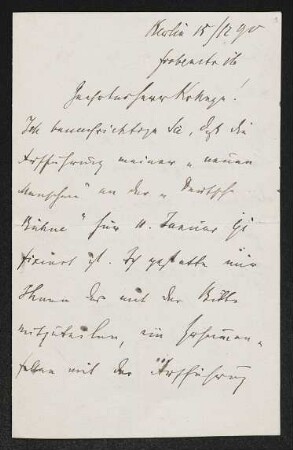 Berlin 15/12 90
Frobenstr 16
Geehrter Herr Kollege!
Ich benachrichtige Sie, daß die
Aufführung meiner „neuen
Menschen“ an der „Deutsch
Bühne“ für 11. Januar 91
fixiert ist. Ich gestatte mir
Ihnen das mit der Bitte
mitzuteilen, ein
mit der Aufführung